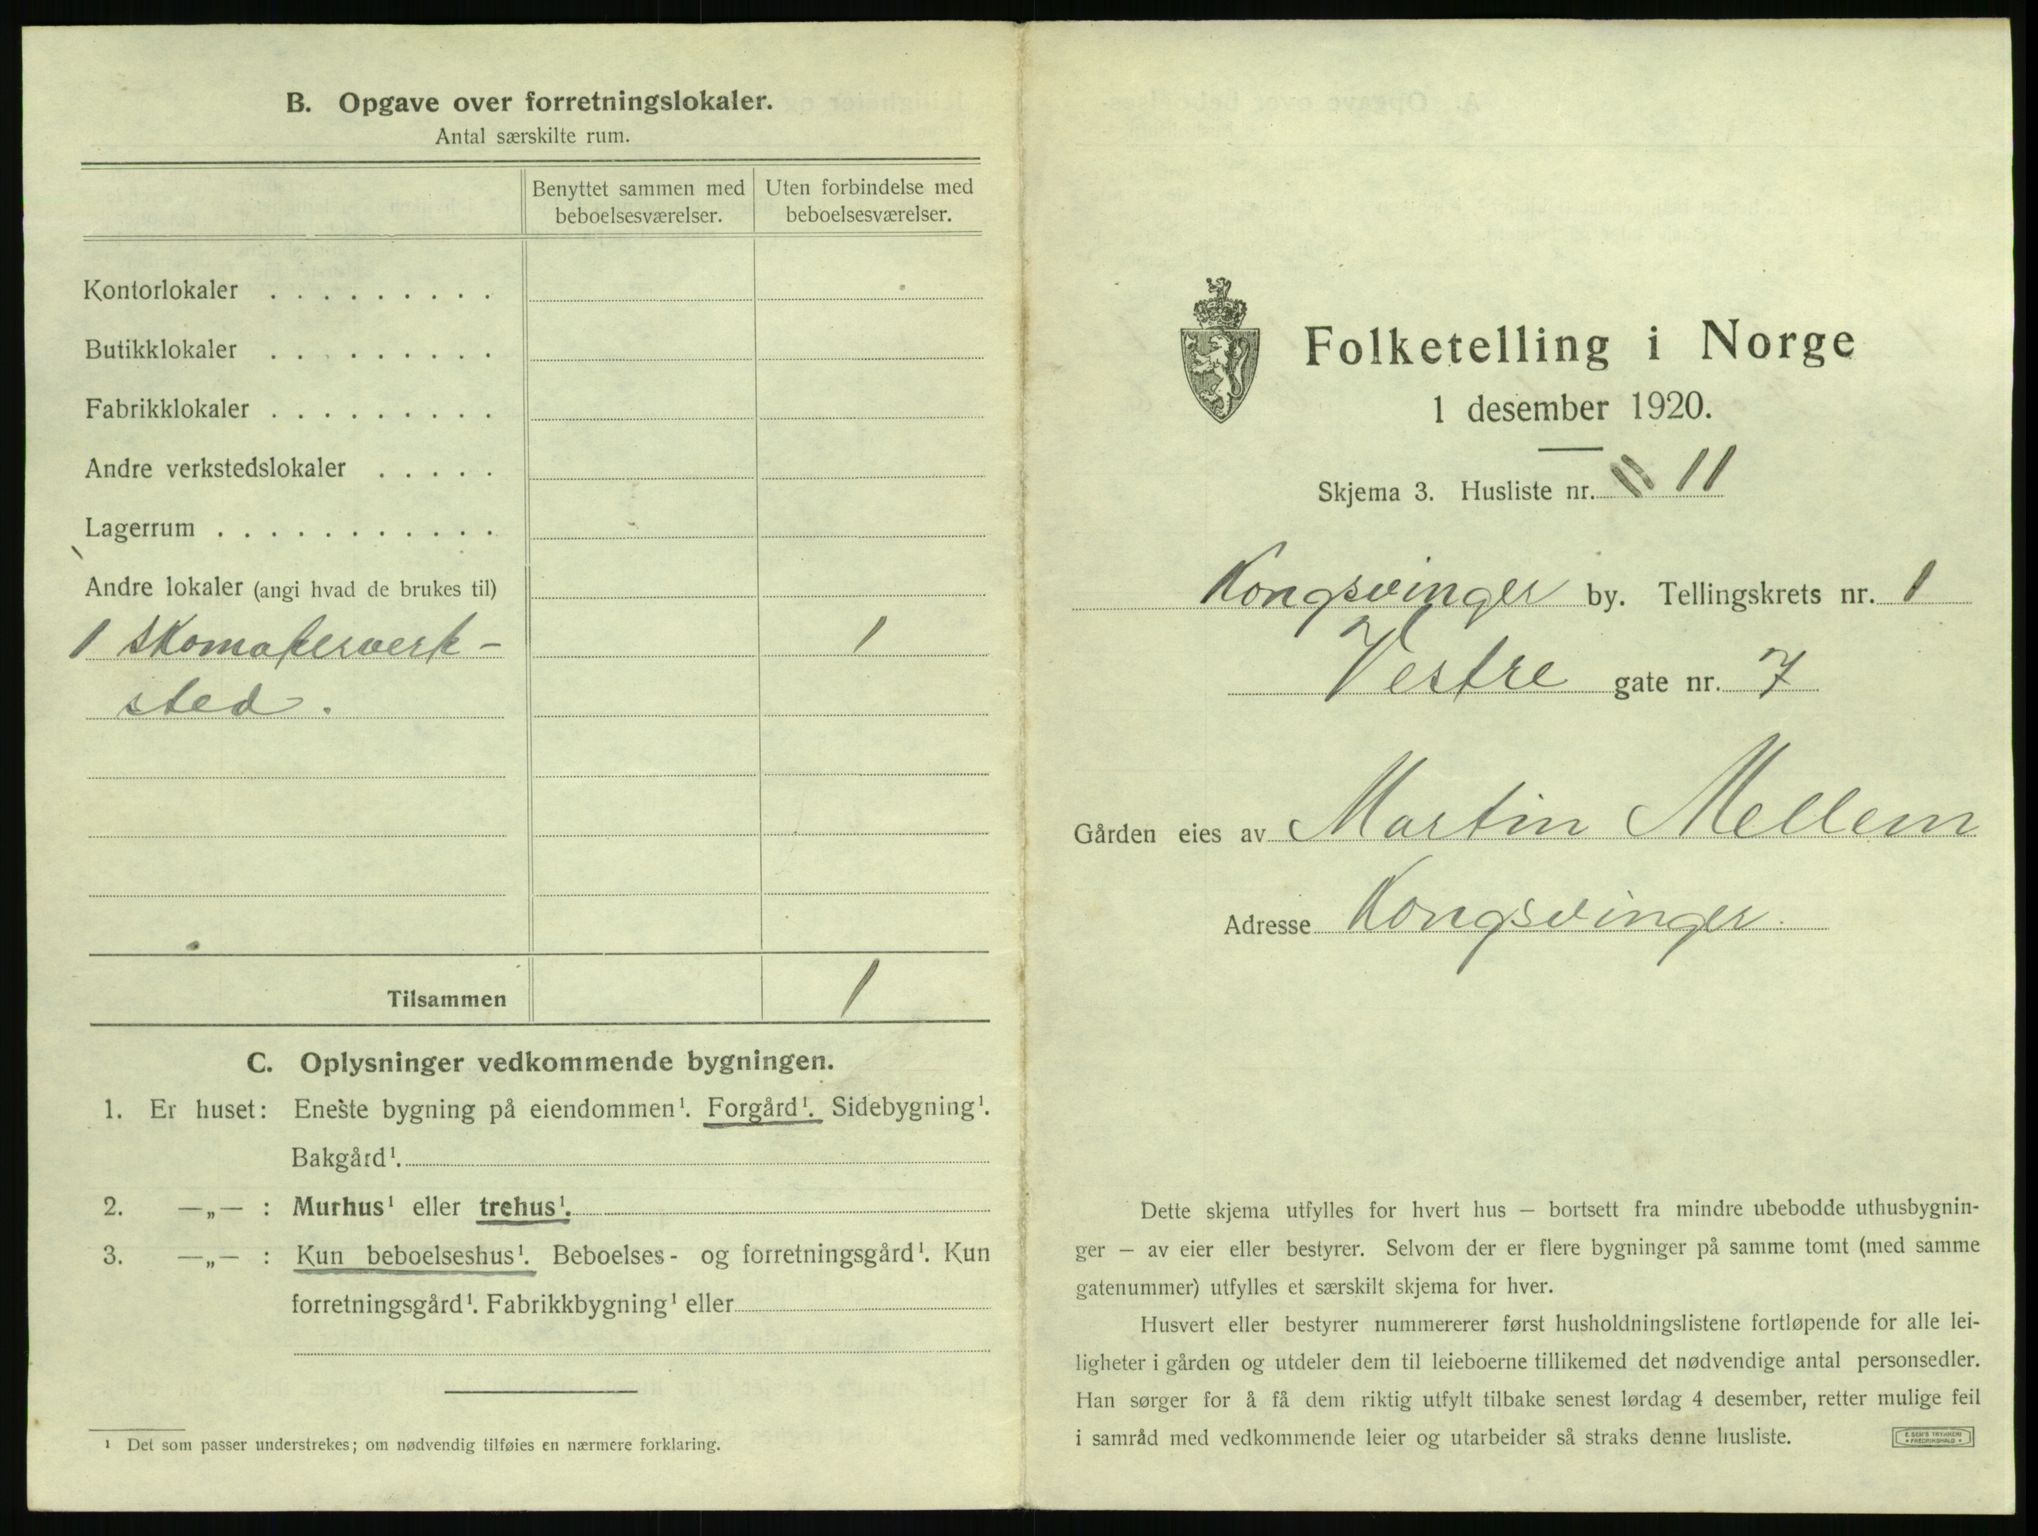 B. Opgave over forretningslokaler.
Antal særskilte rum.
Benyttet sammen med beboelsesværelser.
Uten forbindelse med beboelsesværelser.
Kontorlokaler . . . . . . . . .
Butikklokaler . . . . . . . . .
Fabrikklokaler . . . . . . . . .
Andre verkstedslokaler . . . . .
Lagerrum . . . . . . . . . . .
Andre lokaler (angi hvad de brukes til)
1 Skomakerverk- 1
sted.
Tilsammen 1
C. Oplysninger vedkommende bygningen.
1. Er huset: Eneste bygning på eiendommen¹. Forgård¹. Sidebygning¹.
Bakgård¹.
2. —„— : Murhus¹ eller trehus¹.
3. —„— : Kun beboelseshus¹. Beboelses- og forretningsgård¹. Kun
forretningsgård¹. Fabrikkbygning¹ eller
¹ Det som passer understrekes; om nødvendig tilføies en nærmere forklaring.
Folketelling i Norge
1 desember 1920.
Skjema 3. Husliste nr. 11
Kongsvinger by. Tellingskrets nr. 1
Vestre gate nr. 7
Gården eies av Martin Mellem
Adresse Kongsvinger.
Dette skjema utfylles for hvert hus — bortsett fra mindre ubebodde uthusbygnin-
ger — av eier eller bestyrer. Selvom der er flere bygninger på samme tomt (med samme
gatenummer) utfylles et særskilt skjema for hver.
Husvert eller bestyrer nummererer først husholdningslistene fortløpende for alle lei-
ligheter i gården og utdeler dem til leieboerne tillikemed det nødvendige antal personsedler.
Han sørger for å få dem riktig utfylt tilbake senest lørdag 4 desember, retter mulige feil
i samråd med vedkommende leier og utarbeider så straks denne husliste.
E. SEM'S TRYKKERI
• FREDRIKSHALD •